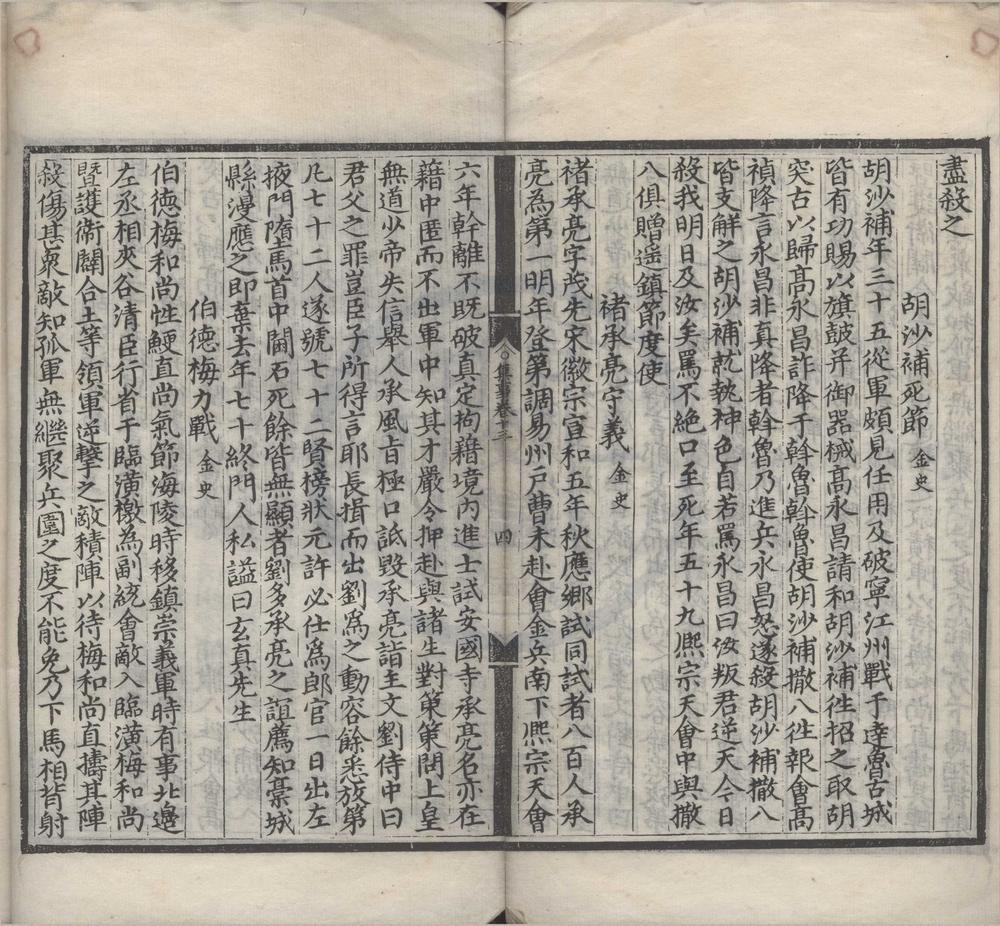 盡殺之
胡沙補死節 金史
胡沙補年三十五從軍頗見任用及破寧江州戰于達魯古城
皆有功賜以旗鼓并御器械高永昌請和胡沙補徃招之取胡
突古以歸高永昌詐降于斡魯斡魯使胡沙補撒八徃報會高
禎降言永昌非真降者斡魯乃進兵永昌怒遂殺胡沙補撒八
皆支解之胡沙補就執神色自若罵永昌曰汝叛君逆天今日
殺我明日及汝矣罵不絕口至死年五十九熈宗天會中與撒
八俱贈遥鎮節度使
褚承亮守義 金史
褚承亮字茂先宋徽宗宣和五年秋應鄉試同試者八百人承
亮為第一明年登第調易州户曹未赴會金兵南下熈宗天會
集事卷十三
四
六年斡離不既破真定拘籍境内進士試安國寺承亮名亦在
籍中匿而不出軍中知其才嚴令押赴與諸生對策策問上皇
無道少帝失信舉人承風旨極口詆毀承亮詣主文劉侍中曰
君父之罪豈臣子所得言耶長揖而出劉為之動容餘悉放第
凡七十二人遂號七十二賢榜狀元許必仕為郎官一日出左
掖門墮馬首中閫石死餘皆無顯者劉多承亮之誼薦知藁城
縣漫應之即棄去年七十終門人私謚曰玄真先生
伯德梅力戰 金史
伯德梅和尚性鯁直尚氣節海陵時移鎮崇義軍時有事北邊
左丞相夾谷清臣行省于臨潢檄為副統會敵入臨潢梅和尚
暨護衛闢合土等領軍逆擊之敵積陣以待梅和尚直擣其陣
殺傷甚衆敵知孤軍無繼聚兵圍之度不能免乃下馬相背射